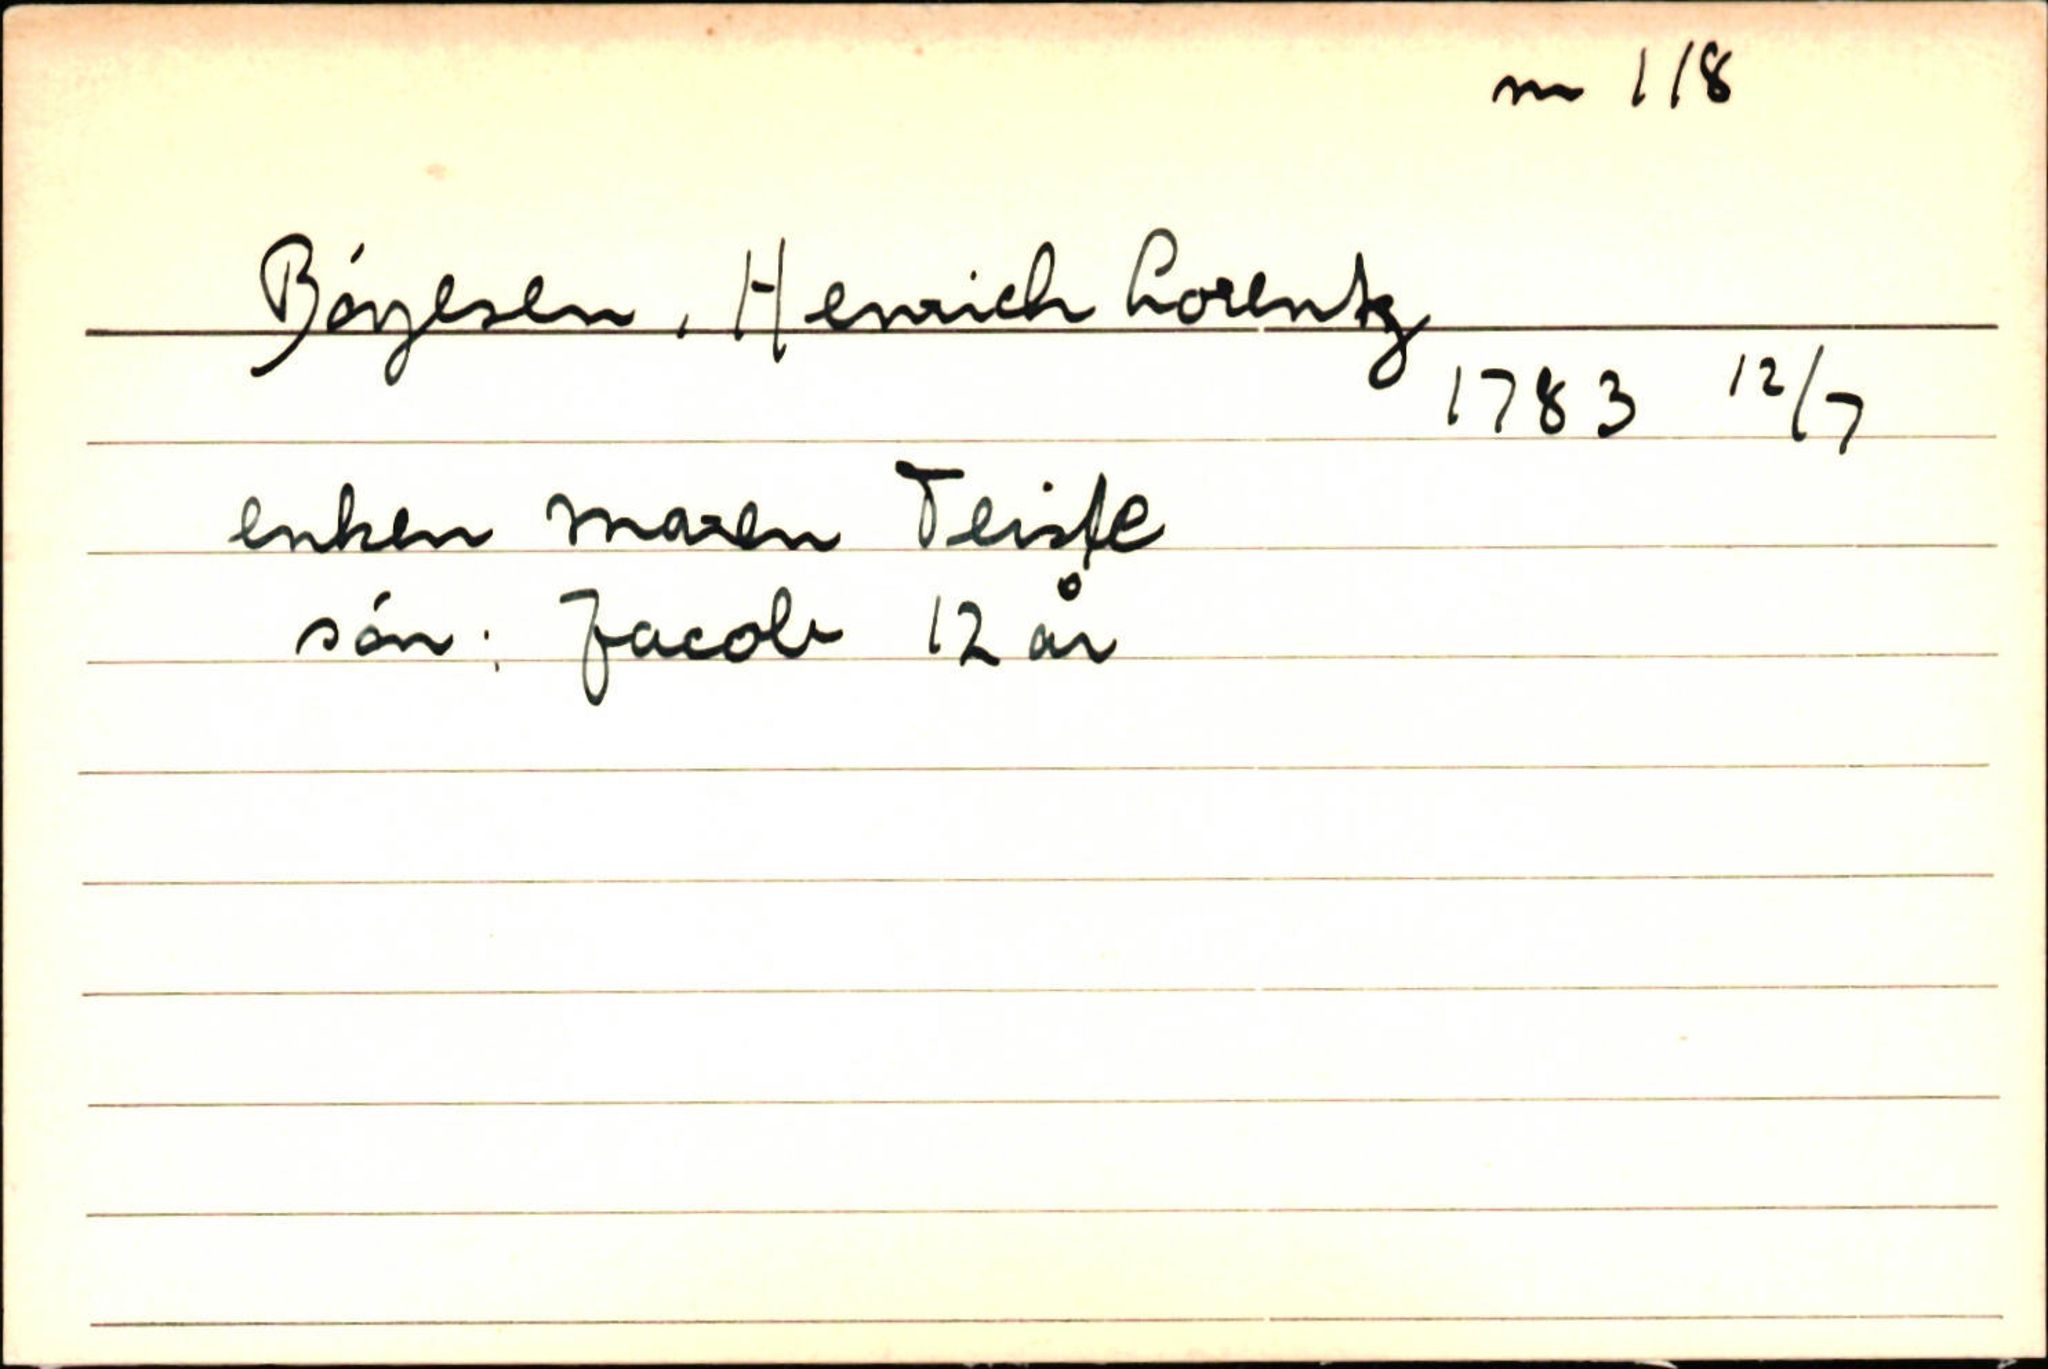 nr 118
Bóyesen, Henrich Lorentz
1783 12/7
enken Maren Teiste
són: Jacob 12 år